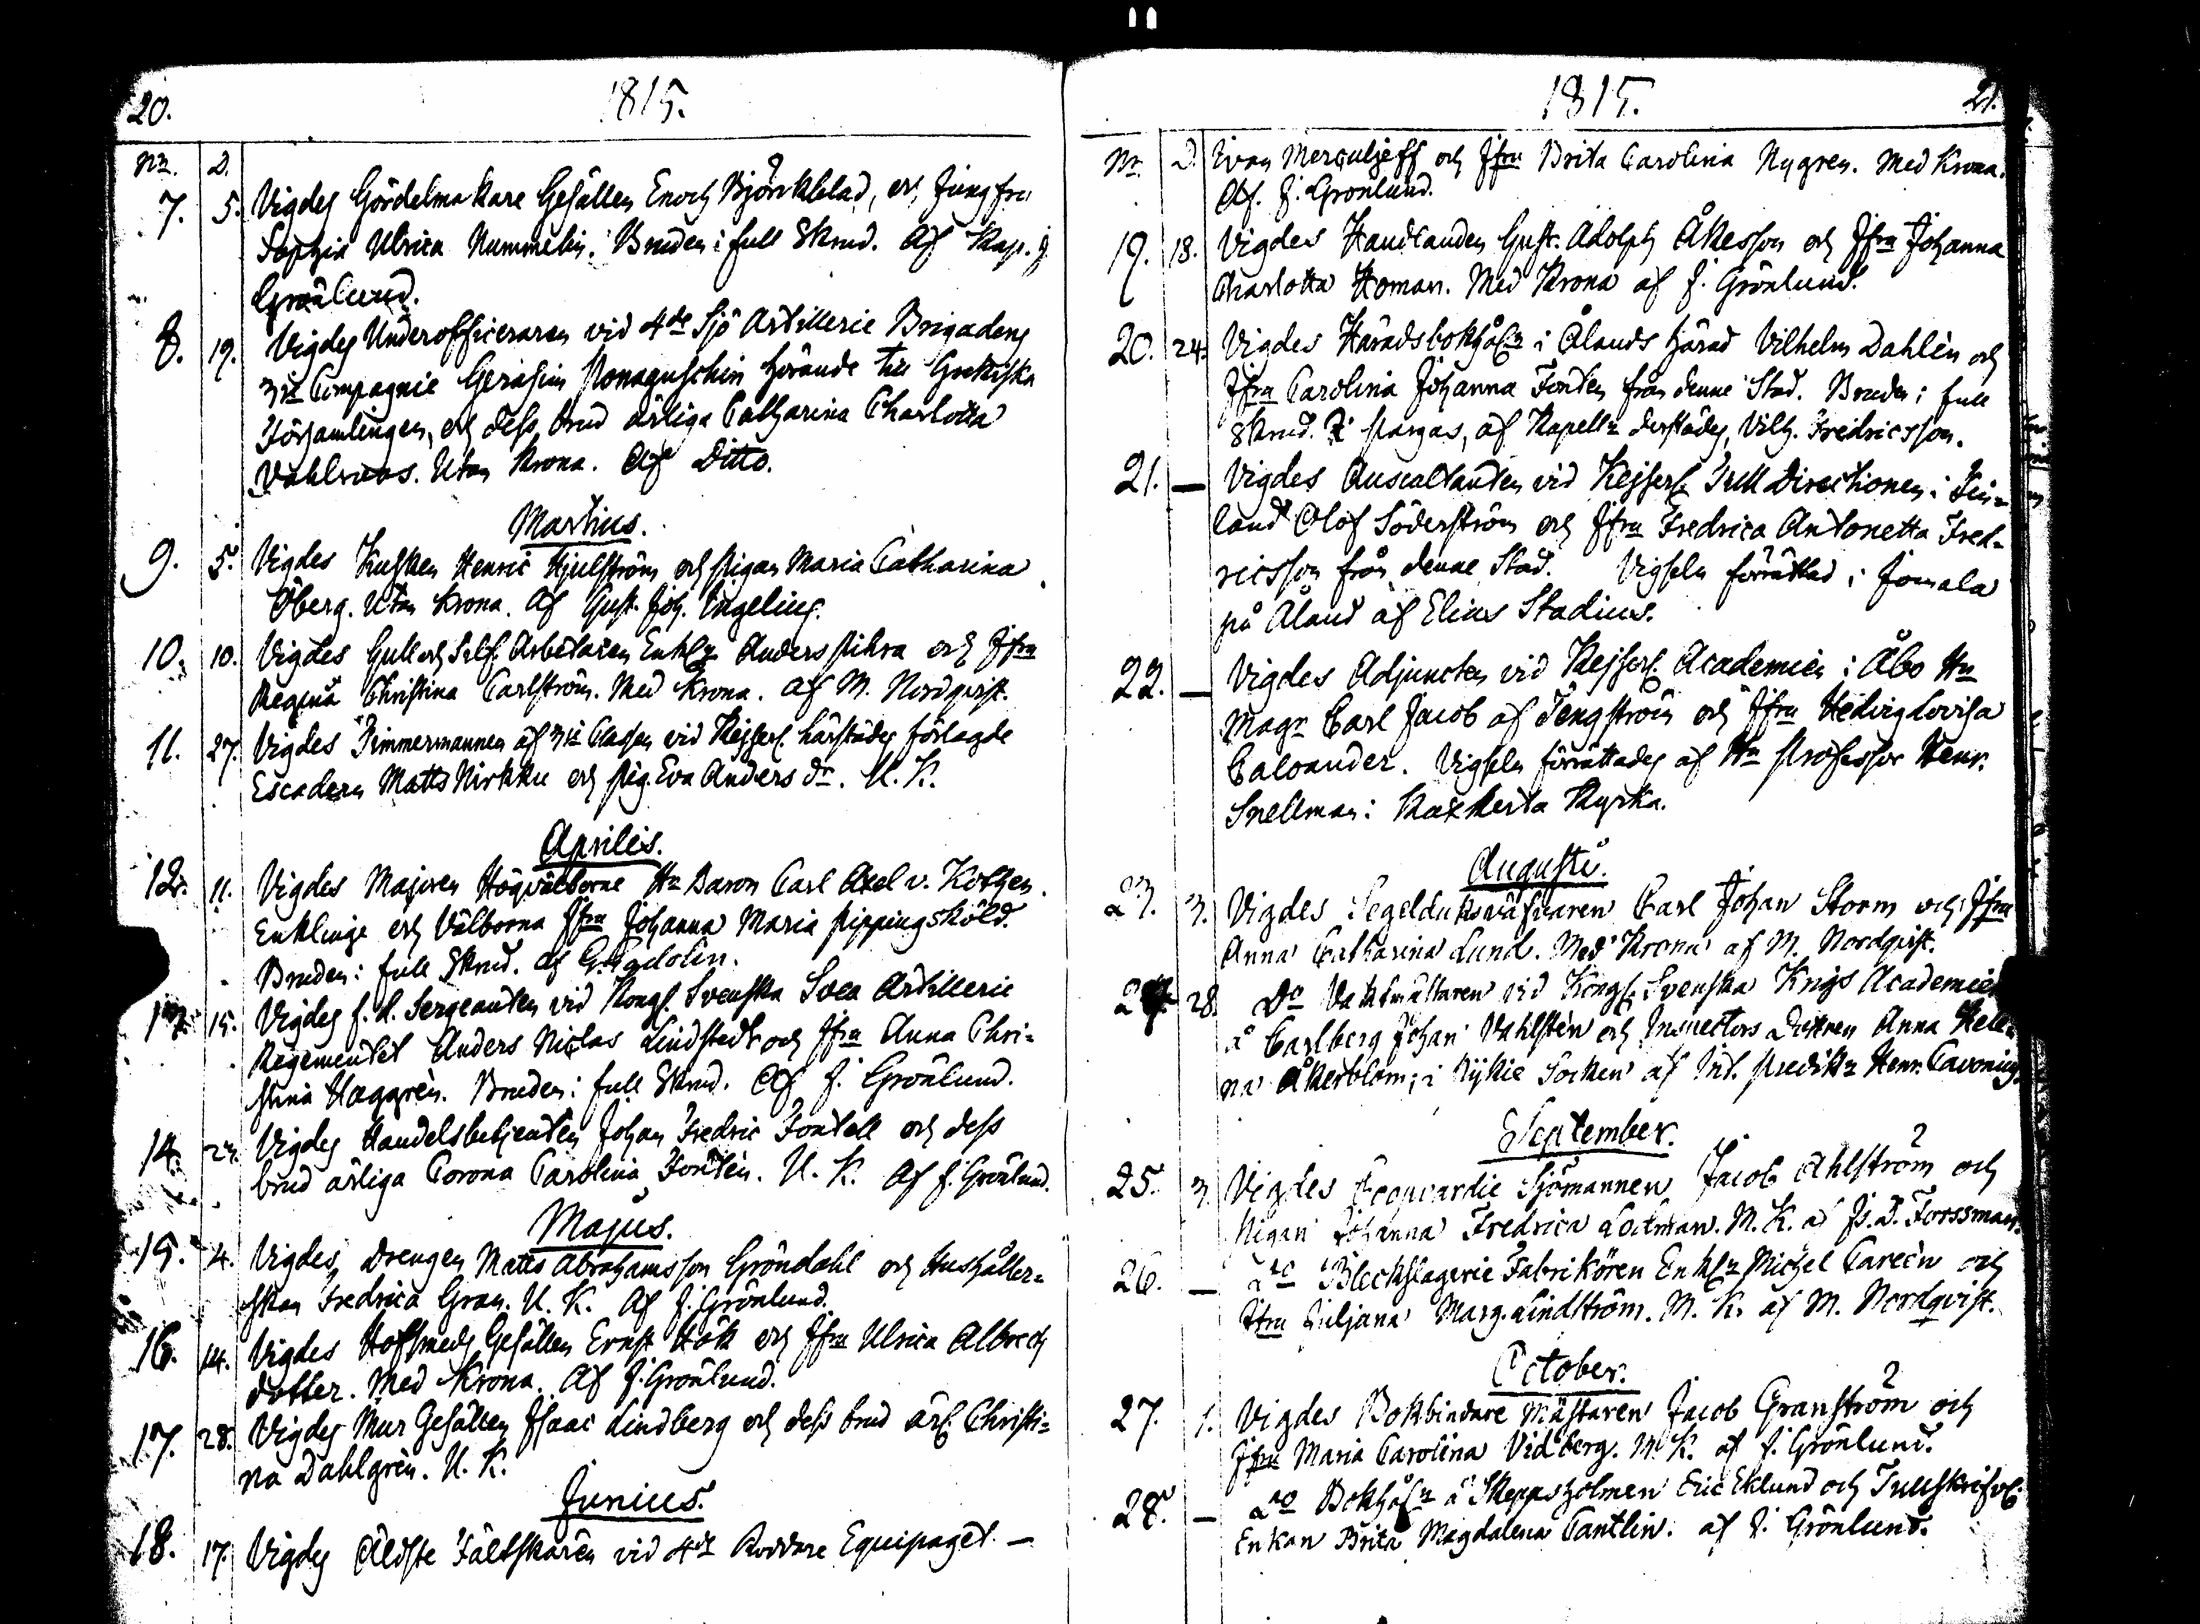 20.
1815.
Nr. D.
7. 5. Vigdes Gördelmakare Gesällen Enoch Björkblad, och Jungfru
Sophia Ulrica Nummelin. Bruden i full Skrud. Af Kap. J.
Grönlund.
8. 19. Vigdes Underofficeraren vid 4de Sjö Artillerie Brigadens
3die Compagnie Gerasim Ponaguschin hörande till Grekiska
Församlingen, och dess brud ärliga Catharina Charlotta
Vahlroos. Utan Krona. Af Ditto.
Martius.
9. 5. Vigdes Kusken Henric Hjulström och Pigan Maria Catharina
Öberg. Utan Krona. Af Gust. Joh. Ingelius.
10. 10. Vigdes Gull och Silf. Arbetaren Enkl. Anders Pihra och Jfru
Regina Christina Carlström. Med Krona. Af M. Nordqvist.
11. 27. Vigdes Timmermannen af 3die Classen vid Kejserl. härstädes förlagde
Escadern Matts Nirkku och Pig. Eva Anders dr. U. K.
Aprilis.
12. 11. Vigdes Majoren Högvälborne Hr Baron Carl Axel v. Kothen
Enklinge och Välborna Jfru Johanna Maria Pippingsköld.
Bruden i full Skrud. af G. Gadolin.
13. 15. Vigdes f. d. Sergeanten vid Kongl. Svenska Svea Artillerie
Regementet Anders Niclas Lindstedt och Jfru Anna Chri-
stina Haggrén. Bruden i full Skrud. Af J. Grönlund.
14. 23. Vigdes Handelsbetjenten Johan Fredric Fontell och dess
brud ärliga Corona Carolina Fontén. U. K. Af J. Grönlund.
Majus.
15. 4. Vigdes Drengen Matts Abrahamsson Gröndahl och Hushåller-
skan Fredrica Gran. U. K. Af J. Grönlund.
16. 14. Vigdes Hofsmeds Gesällen Ernst Hök och Jfru Ulrica Albrechs
dotter. Med Krona. Af J. Grönlund.
17. 28. Vigdes Mur Gesällen Isaac Lindberg och dess brud ärl. Christi-
na Dahlgrén. U. K.
Junius.
18. 17. Vigdes Äldste Fältskären vid 4de Roddare Equipaget —
1815.
21.
Nr. D. Ivan Merculjeff och Jfru Brita Carolina Nygren. Med Krona.
Af. J. Grönlund.
19. 18. Vigdes Handlanden Gust. Adolph Åkesson och Jfru Johanna
Charlotta Homan. Med Krona af J. Grönlund.
20. 24. Vigdes Häradsbokhålr i Ålands Härad Vilhelm Dahlén och
Jfru Carolina Johanna Fontén från denne Stad. Bruden i full
Skrud. I Pargas, af Kapelln derstädes, Vilh. Fredricsson.
21. — Vigdes Auscultanten vid Kejserl. Tull Directionen i Fin-
land Olof Söderström och Jfru Fredrica Antonetta Fred-
ricsson från denne Stad. Vigseln förrättad i Jomala
på Åland af Elias Stadius.
22. — Vigdes Adjuncten vid Kejserl. Academien i Åbo Hr
Magr Carl Jacob af Tengström och Jfru Hedvig Lovisa
Caloander. Vigseln förrättades af Hr Professor Henr.
Snellman i Kakskerta Kyrka.
Augusti.
23. 3. Vigdes Segelduksväfvaren Carl Johan Storm och Jfru
Anna Catharina Lund. Med Krona af M. Nordqvist.
24. 28. Do Vaktmästaren vid Kongl. Svenska Krigs Academien
å Carlberg Johan Vahlstén och Inspectors Dottren Anna Hele-
na Åkerblom; i Kykie Socken af Vik. Predikr Henr. Cavonius.
September.
25. 3. Vigdes Coopvardie Sjömannen Jacob Ahlström och
Pigan Johanna Fredrica Lockman. M. K. af Js. J. Forssman.
26. — Do Bleckslagerie Fabrikören Enkl. Michel Careén och
Jfru Juljana Marg. Lindström. M. K. af M. Nordqvist.
October.
27. 1. Vigdes Bokbindare Mästaren Jacob Granström och
Jfru Maria Carolina Vidberg. M. K. af J. Grönlund.
28. — Do Bokhålr å Skeppsholmen Eric Eklund och Tullskrifv.
Enkan Brita Magdalena Cantlin. af J. Grönlund.